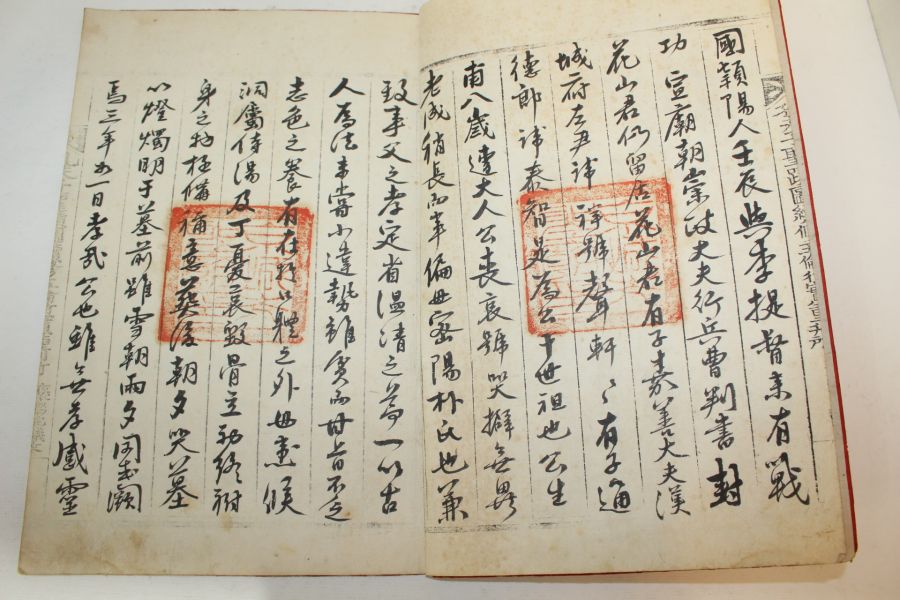 國穎陽人壬辰與李提督來有戰
功 宣廟朝崇政大夫行兵曹判書封
花山君仍留居花山君有子嘉善大夫漢
城府左尹諱 祥號聲軒〻有子通
德郎 諱泰智是爲公十世祖也公生
甫八歲遭大人公喪哀號哭擗無異
老成稍長而事偏母密陽朴氏也兼
致事父之孝定省溫凊之節一以古
人爲法未嘗小違勢雖貧而甘旨不乏
志色之養有在於口體之外母患候
洞屬侍湯及丁憂哀毀骨立初終附
身之物極備稱意葬後朝夕哭墓
以燈燭明于墓前雖雪朝雨夕罔或闕
焉三年如一日孝哉公也雖無孝感靈